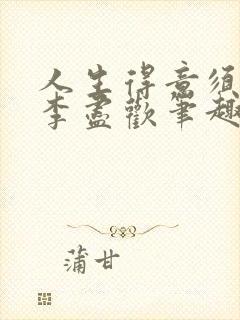 人生得意须
李尽歡笔趣
蒲甘